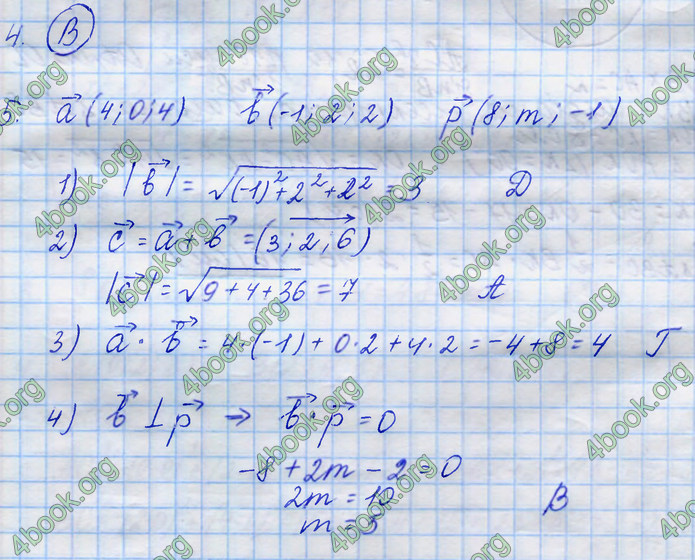 4. В
5. a⃗ (4; 0; 4) b⃗ (-1; 2; 2) p⃗ (8; m; -1)
1) |b⃗| = √((-1)²+2²+2²) = 3 Д
2) c⃗ = a⃗ + b⃗ = (3; 2; 6)
|c⃗| = √(9+4+36) = 7 А
3) a⃗ · b⃗ = 4·(-1) + 0·2 + 4·2 = -4+8 = 4 Г
4) b⃗ ⊥ p⃗ → b⃗ · p⃗ = 0
-8 + 2m - 2 = 0
2m = 10 В
m = 5
4book.org